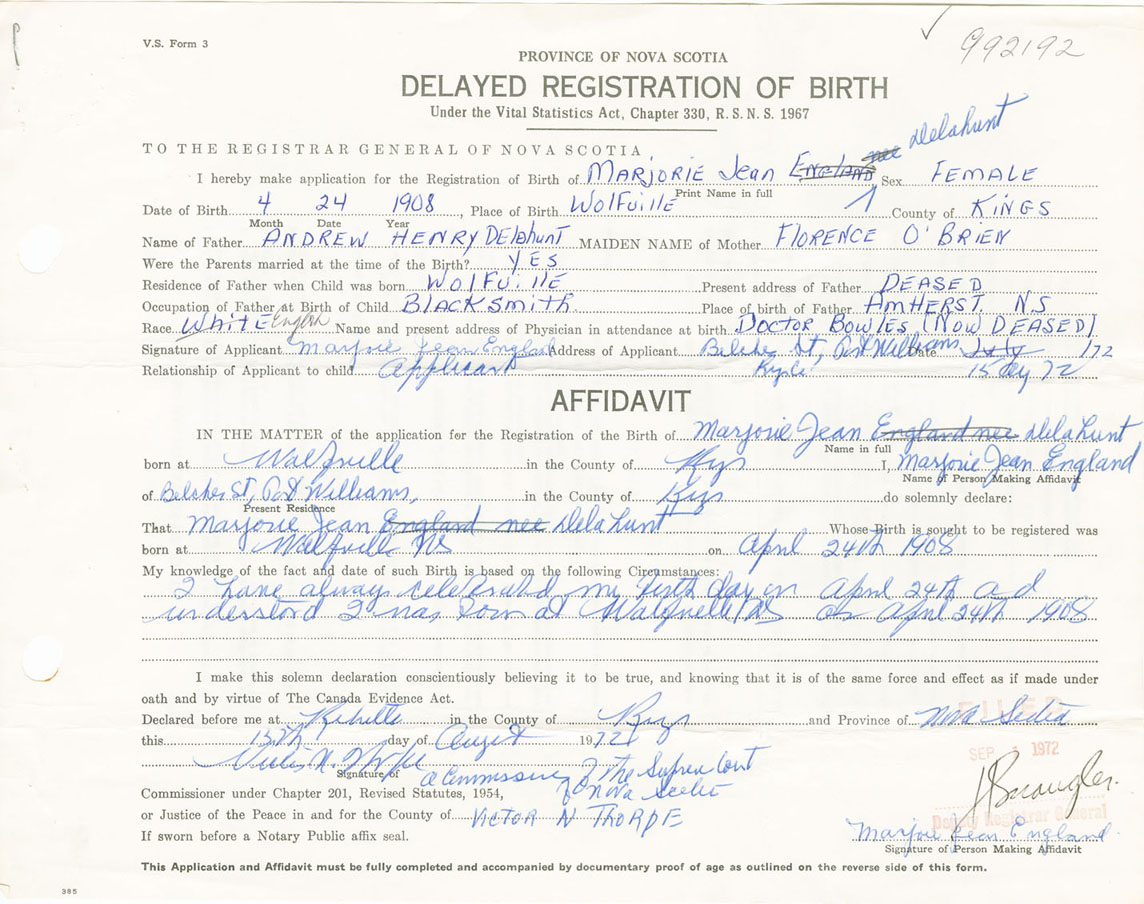 V.S. Form 3
992192
PROVINCE OF NOVA SCOTIA
DELAYED REGISTRATION OF BIRTH
Under the Vital Statistics Act, Chapter 330, R. S. N. S. 1967
TO THE REGISTRAR GENERAL OF NOVA SCOTIA
nee Delahunt
I hereby make application for the Registration of Birth of MARJORIE Jean ENGLAND Sex FEMALE
Print Name in full
Date of Birth 4 24 1908, Place of Birth WolFville County of KINGS
Month Date Year
Name of Father ANDREW HENRY Delahunt MAIDEN NAME of Mother FLORENCE O'BRIEN
Were the Parents married at the time of the Birth? YES
Residence of Father when Child was born WolFville Present address of Father DEASED
Occupation of Father at Birth of Child BLACKSMITH Place of birth of Father AMHERST. NS
Race WHITE English Name and present address of Physician in attendance at birth DOCTOR BOWLES (NOW DEASED)
Signature of Applicant Marjorie Jean England Address of Applicant Belcher St, Port Williams Date July /72
Relationship of Applicant to child Applicant 15 Aug 72
AFFIDAVIT
IN THE MATTER of the application for the Registration of the Birth of Marjorie Jean England nee Delahunt
Name in full
born at Wolfville in the County of Kings I, Marjorie Jean England
Name of Person Making Affidavit
of Belcher St, Port Williams, in the County of Kings do solemnly declare:
Present Residence
That Marjorie Jean England nee Delahunt Whose Birth is sought to be registered was
born at Wolfville NS on April 24th 1908
My knowledge of the fact and date of such Birth is based on the following Circumstances:
I have always celebrated my birth day on April 24th and
understood I was born at Wolfville NS on April 24th 1908
I make this solemn declaration conscientiously believing it to be true, and knowing that it is of the same force and effect as if made under
oath and by virtue of The Canada Evidence Act.
Declared before me at Kentville in the County of Kings and Province of Nova Scotia
FILED
this 15th day of August 1972
SEP 1972
Signature of a Commissioner of the Supreme Court
of Nova Scotia
Commissioner under Chapter 201, Revised Statutes, 1954,
or Justice of the Peace in and for the County of VICTOR N THORPE
Deputy Registrar General
If sworn before a Notary Public affix seal.
Marjorie Jean England
Signature of Person Making Affidavit
This Application and Affidavit must be fully completed and accompanied by documentary proof of age as outlined on the reverse side of this form.
385